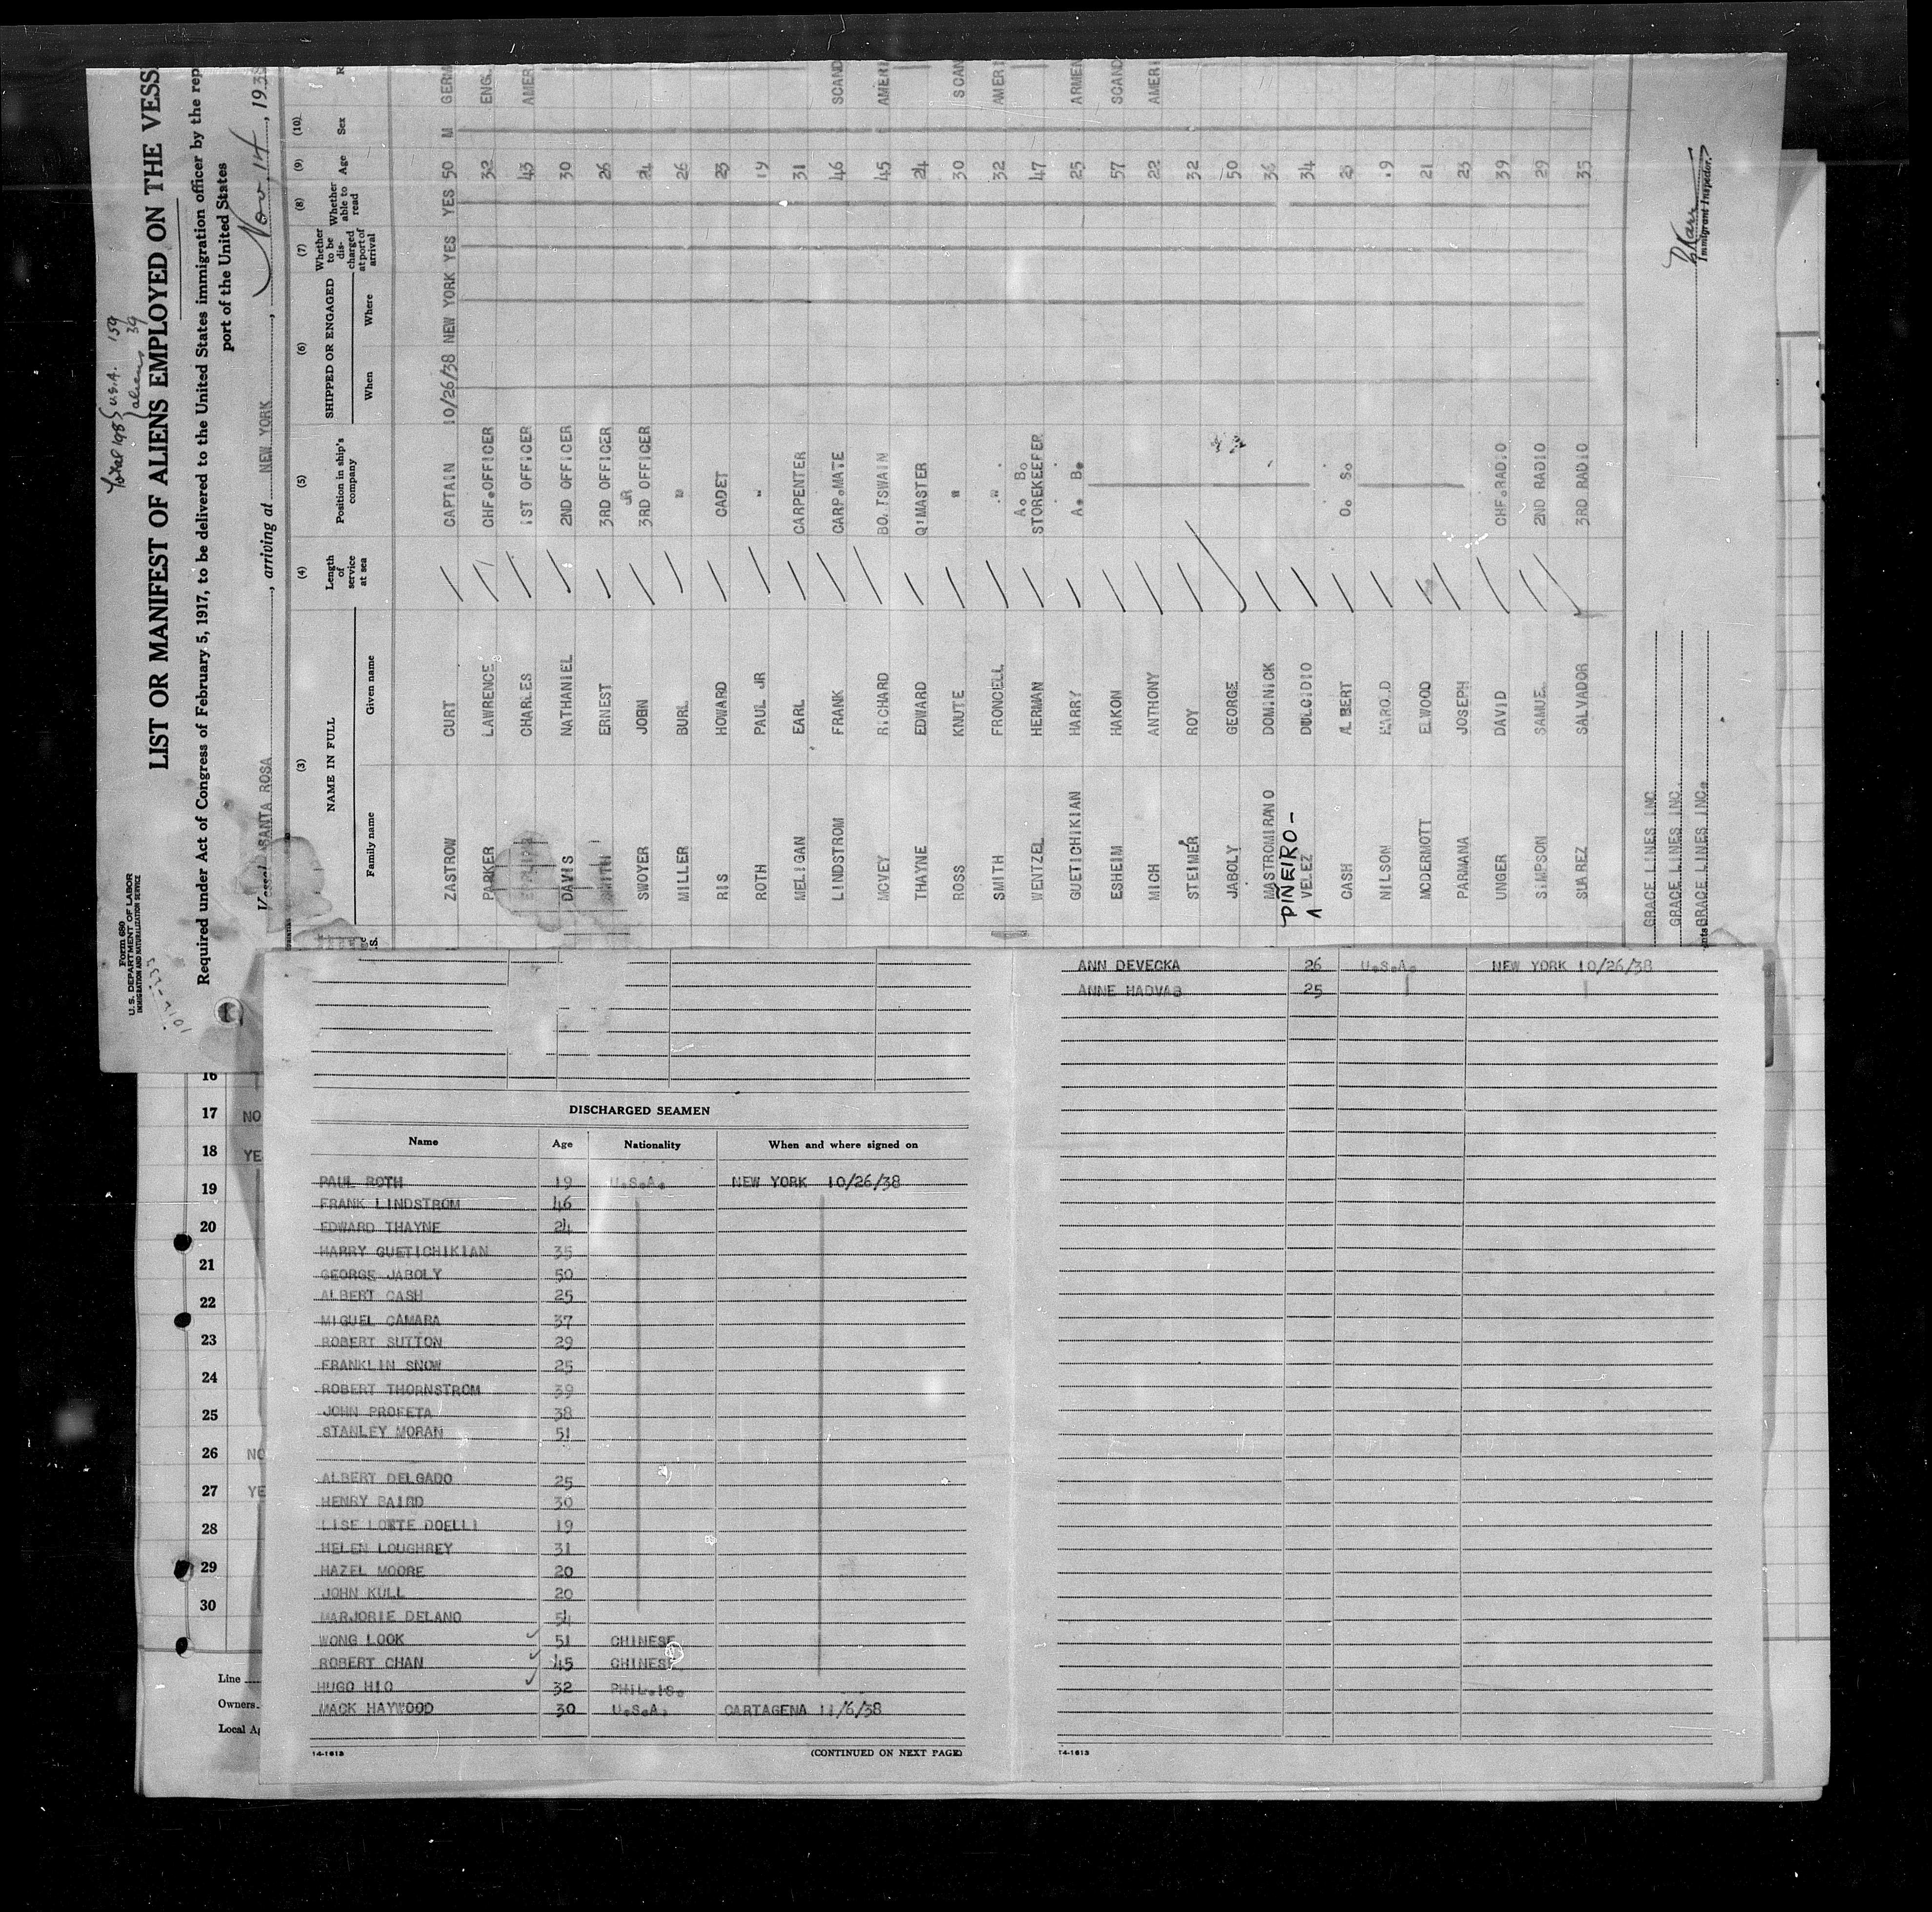 Form 680
U. S. DEPARTMENT OF LABOR
IMMIGRATION AND NATURALIZATION SERVICE
Total 198 { U.S.A. 159
{ aliens 39
LIST OR MANIFEST OF ALIENS EMPLOYED ON THE VESS
Required under Act of Congress of February 5, 1917, to be delivered to the United States immigration officer by the rep
port of the United States
Vessel SANTA ROSA, arriving at NEW YORK, Nov. 14, 193
(3) (4) (5) (6) (7) (8) (9) (10)
NAME IN FULL Length of service at sea Position in ship's company SHIPPED OR ENGAGED Whether to be discharged at port of arrival Whether able to read Age Sex R
Family name Given name When Where
ZASTROW CURT CAPTAIN 10/26/38 NEW YORK YES YES 50 M GERM
PARKER LAWRENCE CHF.OFFICER 32 ENG.
CHARLES 1ST OFFICER 43 AMER
DAVIS NATHANIEL 2ND OFFICER 30
SMITH ERNEST 3RD OFFICER 26
SWOYER JOHN JR 3RD OFFICER 24
MILLER BURL " 26
RIS HOWARD CADET 23
ROTH PAUL JR " 19
MELIGAN EARL CARPENTER 31
LINDSTROM FRANK CARP.MATE 46 SCAND
MCVEY RICHARD BO.TSWAIN 45 AMERI
THAYNE EDWARD Q'MASTER 24
ROSS KNUTE " 30 SCAN
SMITH FRONCELL " 32 AMERI
WENTZEL HERMAN A. B. STOREKEEPER 47
GUETICHIKIAN HARRY A. B. 25 ARMEN
ESHEIM HAKON 57 SCAND
MICH ANTHONY 22 AMERI
STEIMER ROY 32
JABOLY GEORGE 50
MASTROMIRANO DOMINICK 36
PIÑEIRO-
VELEZ DULCIDIO 34
CASH ALBERT O. S. 25
NILSON HAROLD 19
MCDERMOTT ELWOOD 21
PARMANA JOSEPH 23
UNGER DAVID CHF.RADIO 39
SIMPSON SAMUEL 2ND RADIO 29
SUAREZ SALVADOR 3RD RADIO 35
GRACE LINES INC.
GRACE LINES INC.
GRACE LINES INC.
Immigrant Inspector.
16
17 NO
18 YE
19
20
21
22
23
24
25
26 NO
27 YE
28
29
30
Line
Owners
Local Ag
DISCHARGED SEAMEN
Name Age Nationality When and where signed on
PAUL ROTH 19 U.S.A. NEW YORK 10/26/38
FRANK LINDSTROM 46
EDWARD THAYNE 24
HARRY GUETICHIKIAN 35
GEORGE JABOLY 50
ALBERT CASH 25
MIGUEL CAMARA 37
ROBERT SUTTON 29
FRANKLIN SNOW 25
ROBERT THORNSTROM 39
JOHN PROFETA 38
STANLEY MORAN 51
ALBERT DELGADO 25
HENRY BAIRD 30
LISE LOTTE DOELLI 19
HELEN LOUGHREY 31
HAZEL MOORE 20
JOHN KULL 20
MARJORIE DELANO 54
WONG LOOK 51 CHINESE
ROBERT CHAN 45 CHINESE
HUGO HIO 32 PHIL.IS.
MACK HAYWOOD 30 U.S.A. CARTAGENA 11/6/38
14-1613 (CONTINUED ON NEXT PAGE)
ANN DEVECKA 26 U.S.A. NEW YORK 10/26/38
ANNE HADVAB 25
14-1613